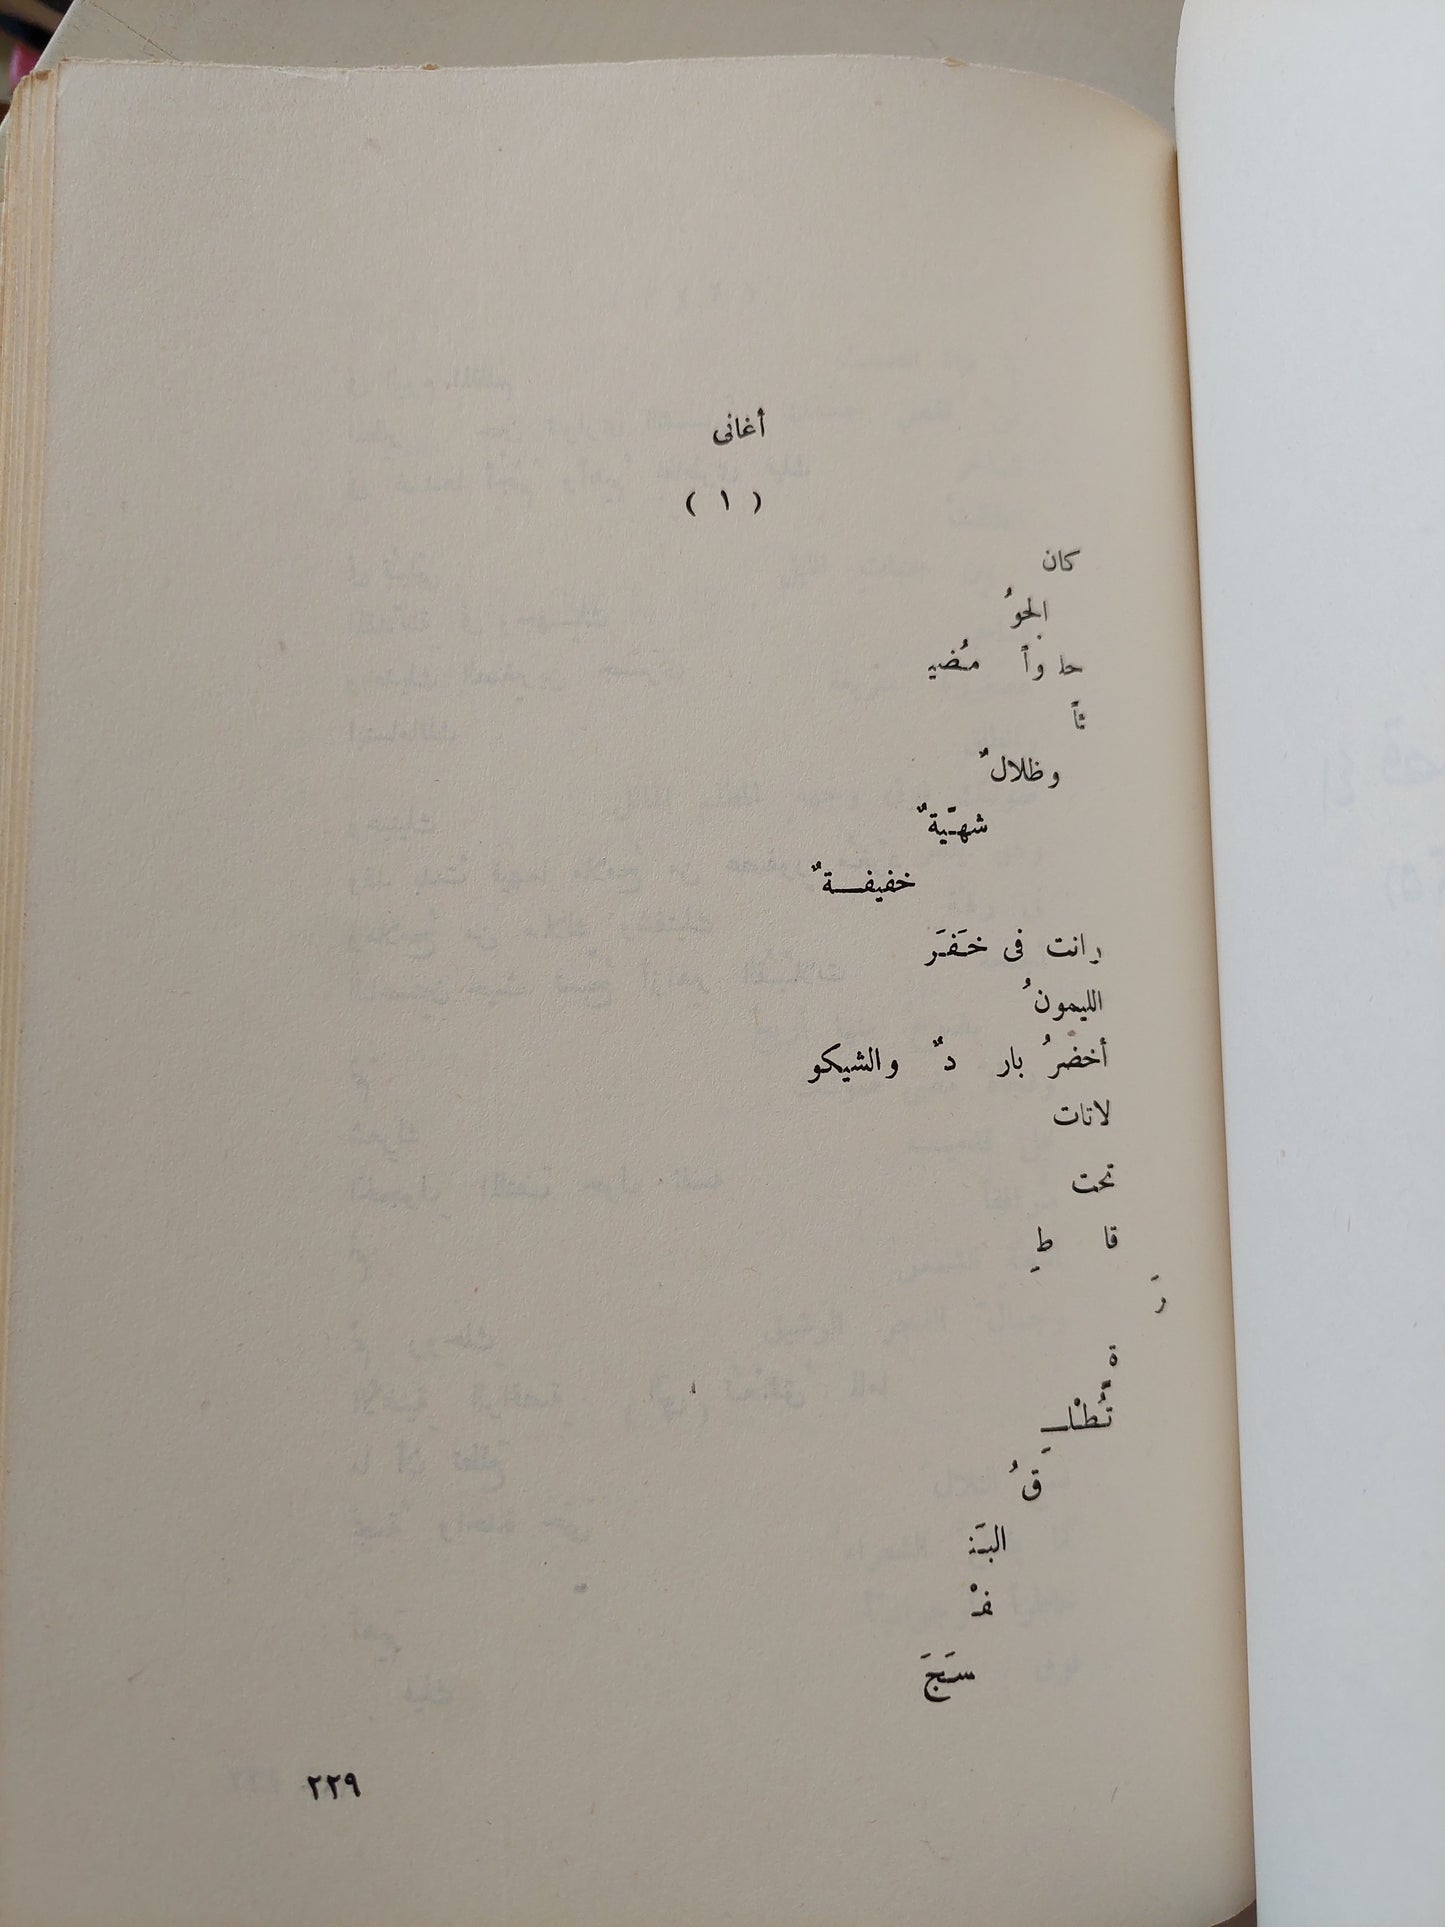 أغانى
( ١ )
كان
الجوُ
حلـ واً مُضيـ
ئاً
وظلالٌ
شهـيّةٌ
خفيفـــةٌ
رانت فى خَفَر
الليمونُ
أخضرُ بار دٌ والشيكو
لاتات
تحت
قا طِـ
رَ
ة
تُطْلـــِ
قُ
البَنـَ
فْـ
سَجَ
٢٢٩